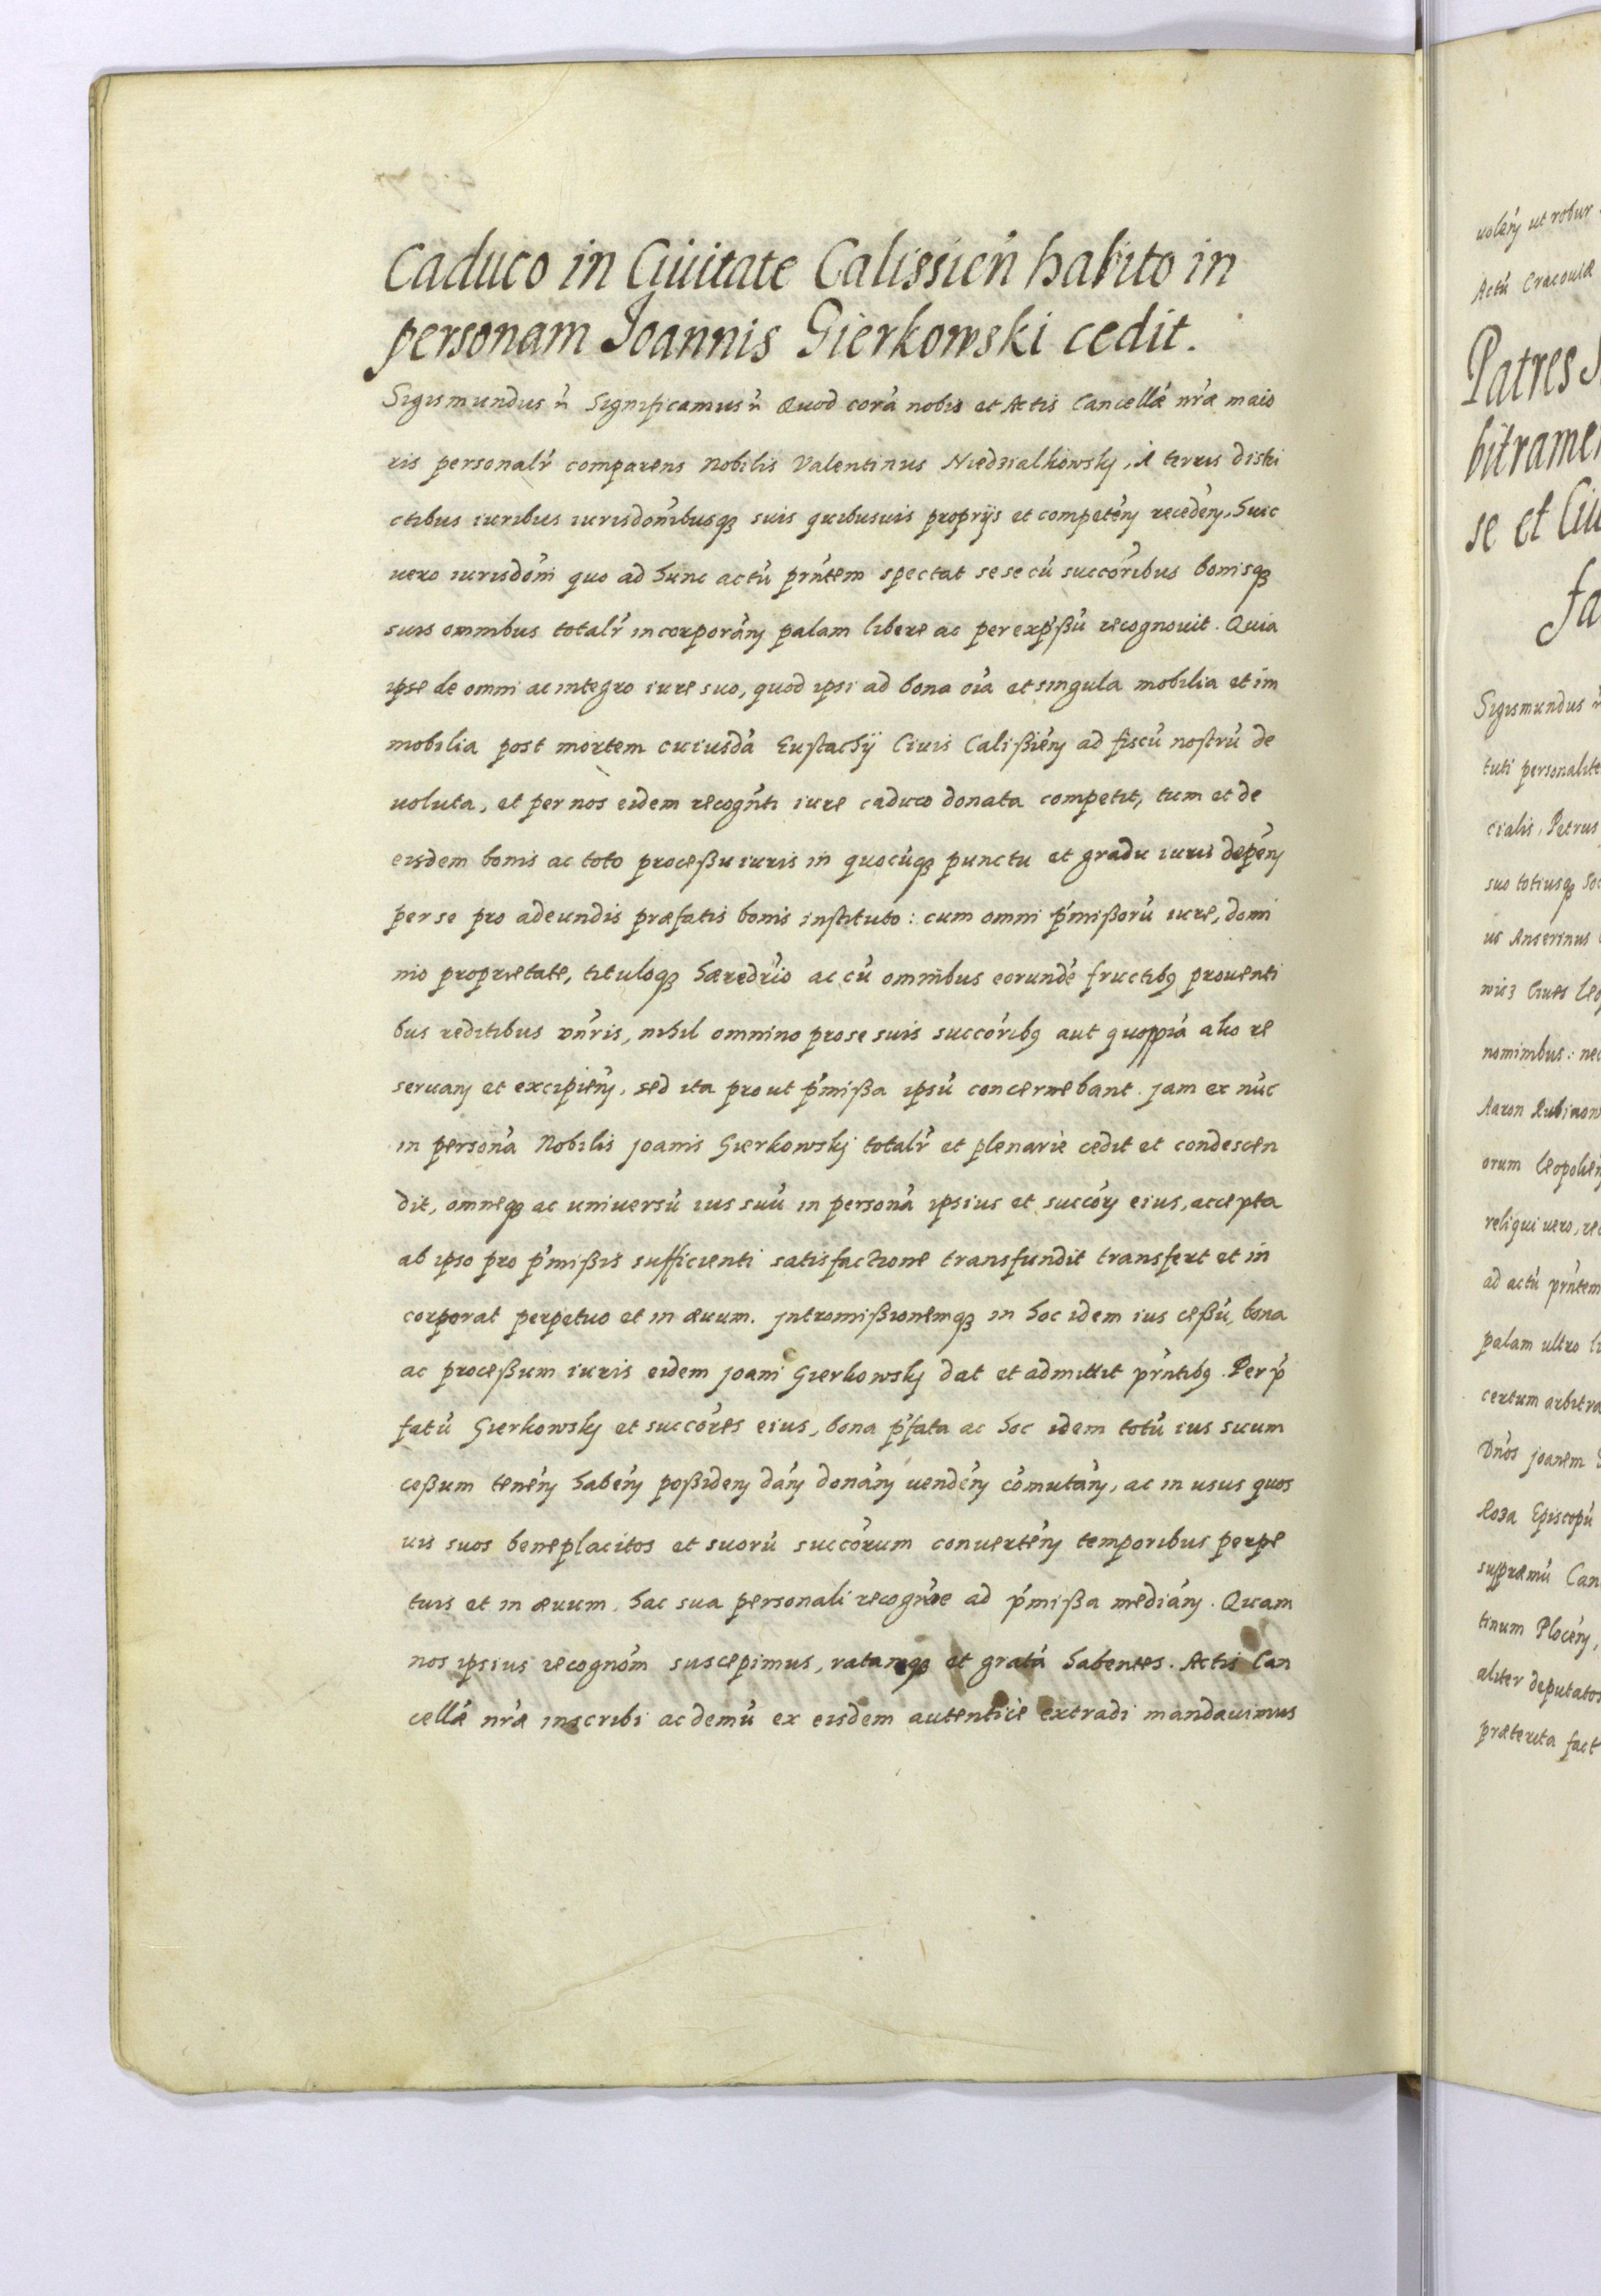 Caduco in Ciuitate Calissień habito in
personam Joannis Gierkowski cedit.
Sigismundus ñ Significamus ñ Quod corá nobis et Actis Cancellæ nr̃æ maio
ris personalr̃ comparens Nobilis Valentinus Niedzialkowskj, A terris distri
ctibus iuribus iurisdoñibusq₃ suis quibusuis proprijs et competeñ recedeñ, huic
uero iurisdoñi quo ad hunc actũ prñtem spectat sese cũ succoribus bonisq₃
suis omnibus totalr̃ incorporañ palam libere ac per exp̃ßũ recognouit. Quia
ipse de omni ac integro iure suo, quod ipsi ad bona oĩa et singula mobilia et im
mobilia post mortem cuiusdã Eustachÿ Ciuis Calißień ad fiscũ nostrũ de
uoluta, et per nos eidem recogñti iure caduco donata competit, tum et de
eisdem bonis ac toto proceßu iuris in quocũq₃ punctu et gradu iuris depeñ
per se pro adeundis præfatis bonis instituto: cum omni p̃mißorũ iure, domi
nio proprietate, tituloq₃ hæredr̃io ac cũ omnibus eorundẽ fructibꝫ prouenti
bus reditibus vñris, nihil omnino pro se suis succoribꝫ aut quoppiã alio re
seruañ et excipieñ, sed ita prout p̃mißa ipsũ concernebant. jam ex nũc
in personã Nobilis joanis Gierkowskj totalr̃ et plenarie cedit et condescen
dit, omneq₃ ac uniuersũ ius suũ in personã ipsius et succoꝝ eius, accepta
ab ipso pro p̃mißis sufficienti satisfactione transfundit transfert et in
corporat perpetuo et in æuum. jntromißionemq₃ in hoc idem ius ceßũ, bona
ac proceßum iuris eidem joani Gierkowskj dat et admittit prñtibꝫ. Per p̃
fatũ Gierkowskj et succores eius, bona p̃fata ac hoc idem totũ ius suum
ceßum teneñ habeñ poßideñ dañ donañ uendeñ com̃utañ, ac in usus quos
uis suos beneplacitos et suorũ succorum conuerteñ temporibus perpe
tuis et in æuum, hac sua personali recogñoe ad p̃mißa mediañ. Quam
nos ipsius recognom̃ suscepimus, ratamq₃ et gratã habentes. Actis Can
cellæ nr̃æ inscribi ac demũ ex eisdem autentice extradi mandauimus
uoleñ ut robur
Actũ Cracouiæ
Patres S
bitramen
se et Ciu
fa
Sigismundus ñ
tuti personalite
cialis, Petrus
suo totiusq₃ soc
us Anserinus
wicz Ciues Leo
nominibus: nec
Aaron Rubinow
orum Leopolień
reliqui uero, re
ad actũ prñtem
palam ultro li
certum arbitra
Dños joanem
Roza Episcopũ
supremũ Can
tinum Ploceñ,
aliter deputatos
præterita fact